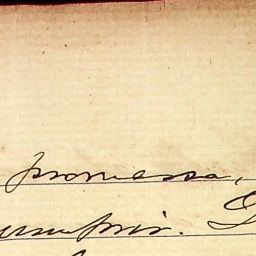 promessa,
cumprir. D